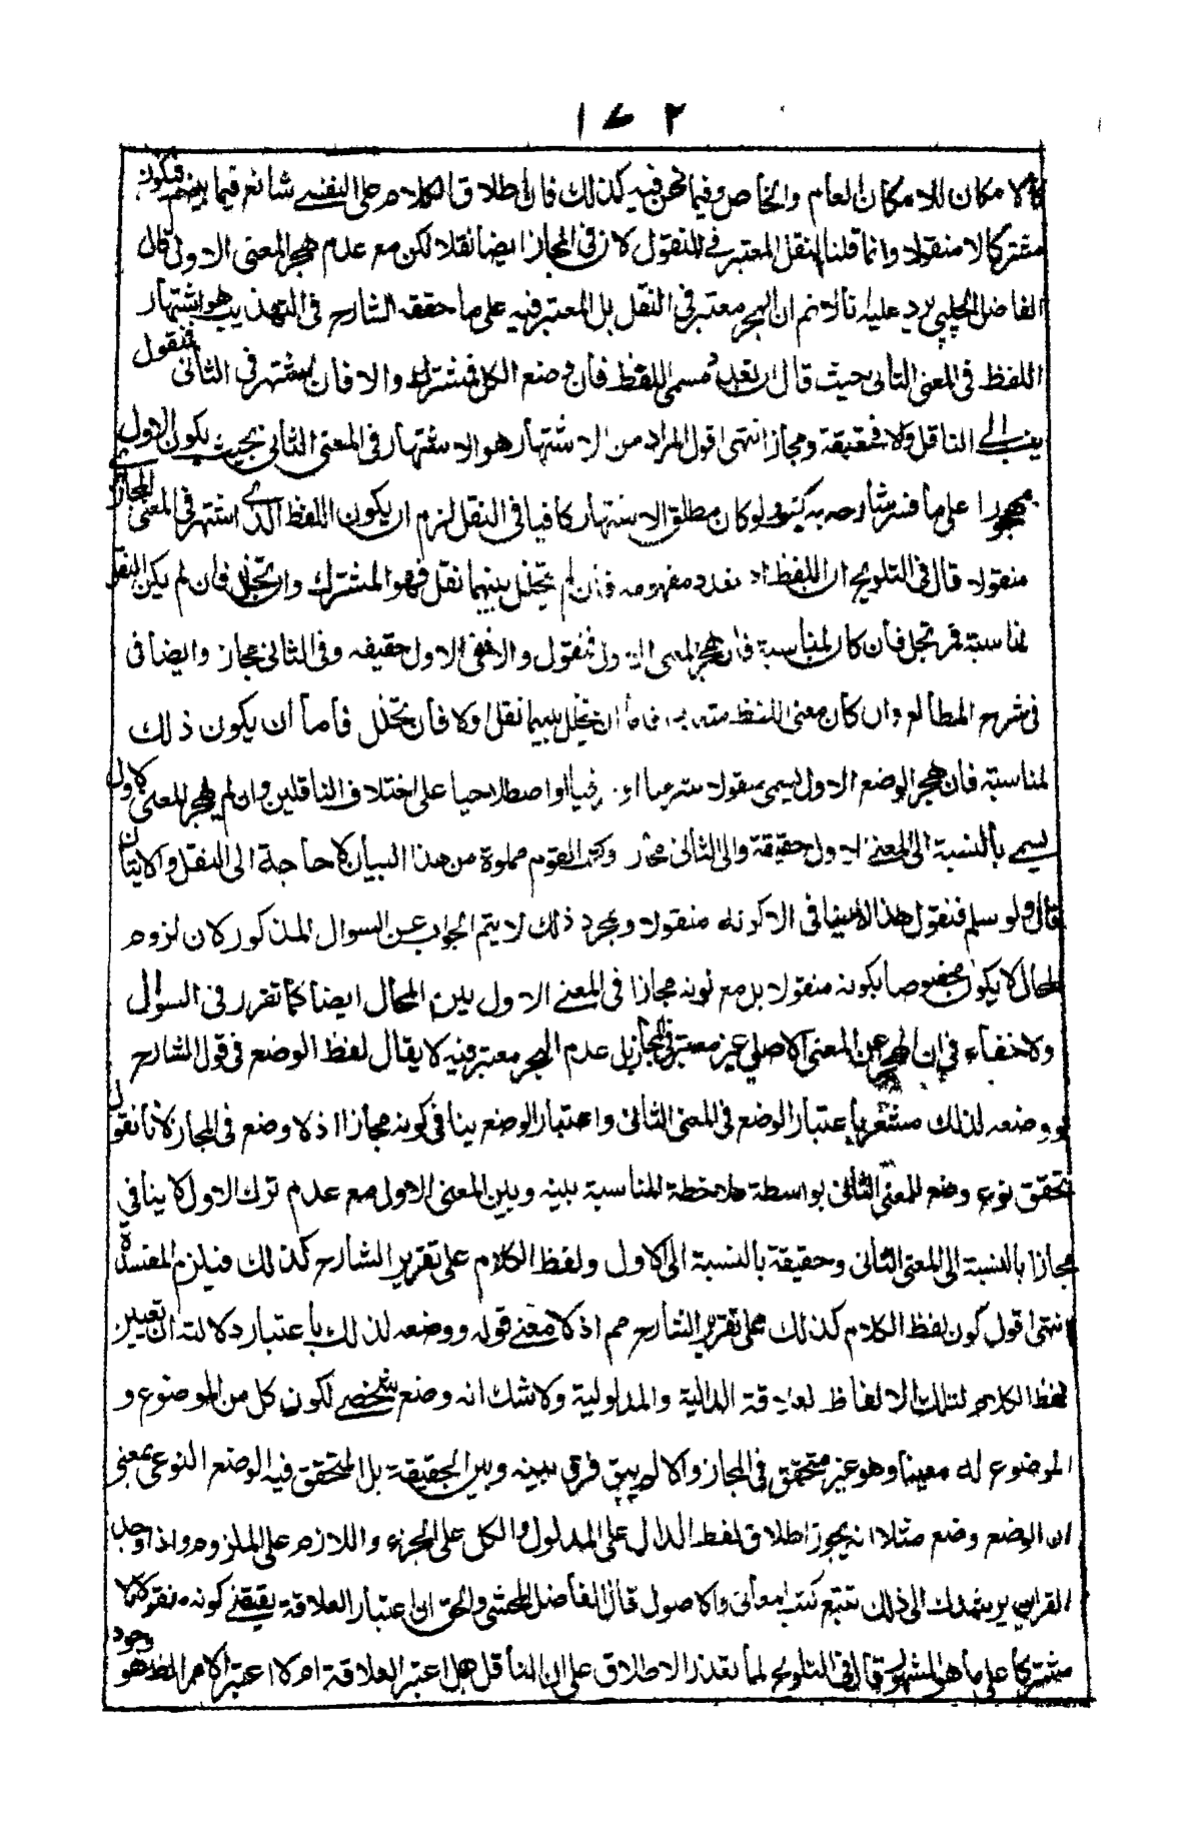 ١٧٢
كالامكان للامكان العام والخاص وفيما نحن فيه كذلك فان اطلاق الكلام على النفسي شائع فيما بينهم فيكون
مشتركا لا منقولا وانما قلنا النقل المعتبر في المنقول لان في المجاز ايضا نقلا لكن مع عدم هجر المعنى الاول قال
الفاضل الچلپي يرد عليه انا لا نم ان الهجر معتبر في النقل بل المعتبر فيه على ما حققه الشارح في التهذيب هو اشتهار
اللفظ في المعنى الثانى حيث قال ان تعدد مسمى اللفظ فان وضع الكل فمشترك والا فان اشتهر في الثانى فمنقول
ينسب الى الناقل والا فحقيقة ومجاز انتهى اقول المراد من الاشتهار هو الاشتهار في المعنى الثانى بحيث يكون الاول
مهجورا على ما فسر شارحه به كيف ولو كان مطلق الاشتهار كافيا في النقل لزم ان يكون اللفظ الذي اشتهر في المعنى المجازي
منقولا قال في التلويح ان اللفظ اذا تعدد مفهومه فان لم يتخلل بينهما نقل فهو المشترك وان تخلل فان لم يكن النقل
لمناسبة فمرتجل فان كان لمناسبة فان هجر المعنى الاول فمنقول والا ففى الاول حقيقه وفى الثانى مجاز وايضا فى
فى شرح المطالع وان كان معنى اللفظ متعددا فاما ان يتخلل بينهما نقل او لا فان تخلل فاما ان يكون ذلك
لمناسبة فان هجر الوضع الاول يسمى منقولا شرعيا او عرفيا او اصطلاحيا على اختلاف الناقلين وان لم يهجر المعنى الاول
يسمى بالنسبة الى المعنى الاول حقيقة والى الثانى مجاز وكتب القوم مملوة من هذا البيان لا حاجة الى النقل والاتيان
قال ولو سلم فنقول هذا لا ينافى الا كونه منقولا وبمجرد ذلك لا يتم الجواب عن السوال المذكور كان لزوم
المحال لا يكون مخصوصا بكونه منقولا بل مع كونه مجازا فى المعنى الاول يلزم المحال ايضا كما تقرر فى السوال
ولا خفاء في ان الهجر عن المعنى الاصلي غير معتبر في المجاز بل عدم الهجر معتبر فيه لا يقال لفظ الوضع فى قول الشارح
ووضعه لذلك مشعر باعتبار الوضع فى المعنى الثانى واعتبار الوضع ينافى كونه مجازا اذ لا وضع فى المجاز لانا نقول
تحقق نوع وضع للمعنى الثانى بواسطة ملاحظة المناسبة بينه وبين المعنى الاول مع عدم ترك الاول لا ينافي
مجازا بالنسبة الى المعنى الثانى وحقيقة بالنسبة الى الاول ولفظ الكلام على تقرير الشارح كذلك فيلزم المفسدة
انتهى اقول كون لفظ الكلام كذلك على تقرير الشارح مم اذ لا معنى قوله ووضعه لذلك باعتبار دلالته ان تعيين
لفظ الكلام لتلك الالفاظ لعلاقة الدالية والمدلولية ولا شك انه وضع شخصي لكون كل من الموضوع و
الموضوع له معينا وهو غير متحقق فى المجاز والا لم يبق فرق بينه وبين الحقيقة بل المتحقق فيه الوضع النوعى بمعنى
ان الوضع وضع مثلا انه يجوز اطلاق لفظ الدال على المدلول والكل على الجزء واللازم على الملزوم واذا وجد
القراين يرشدك الى ذلك تتبع كتب المعانى والاصول قال الفاضل المحشي والحق ان اعتبار العلاقة يقتضي كونه منقولا لا
مشتركا على ما هو المشهور قال فى التلويح لما تعذر الاطلاق على ان الناقل هل اعتبر العلاقة ام لا اعتبر الامر الظاهر وهو وجود